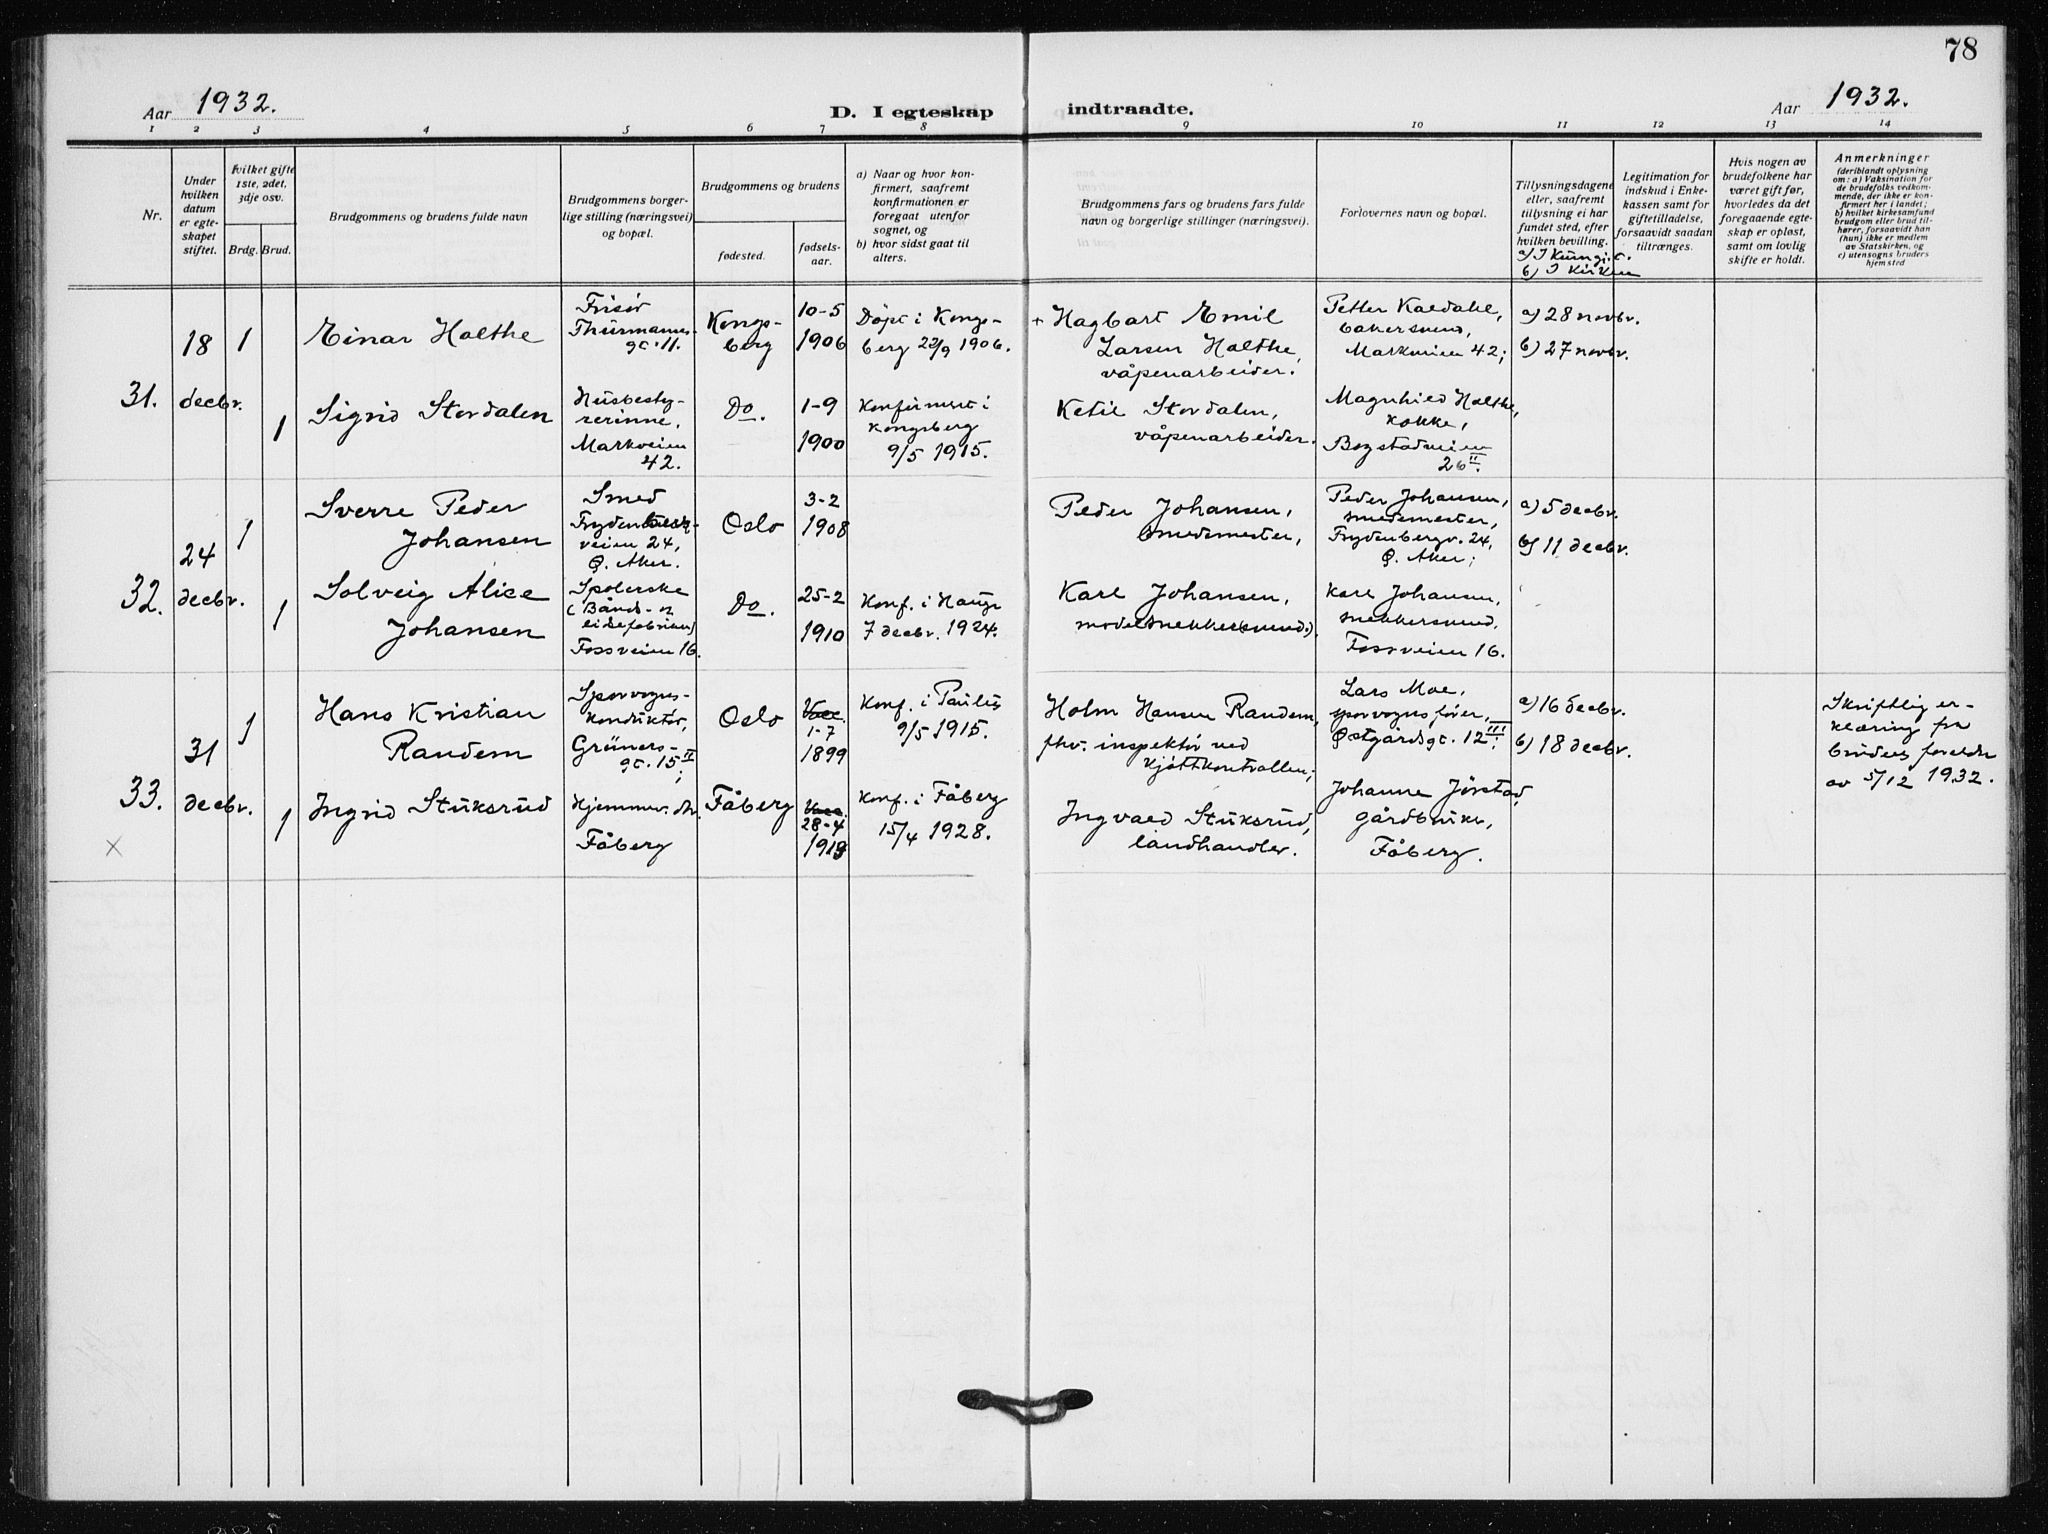 78
Aar 1932.
D. I egteskap indtraadte.
Aar 1932.
1 2 3 4 5 6 7 8 9 10 11 12 13 14
Nr.
Under
hvilken
datum
er egte-
skapet
stiftet.
Hvilket gifte
1ste, 2det,
3dje osv.
Brdg. Brud.
Brudgommens og brudens fulde navn
Brudgommens borger-
lige stilling (næringsvei)
og bopæl.
Brudgommens og brudens
fødested.
fødsels-
aar.
a) Naar og hvor kon-
firmert, saafremt
konfirmationen er
foregaat utenfor
sognet, og
b) hvor sidst gaat til
alters.
Brudgommens fars og brudens fars fulde
navn og borgerlige stillinger (næringsvei).
Forlovernes navn og bopæl.
Tillysningsdagene
eller, saafremt
tillysning ei har
fundet sted, efter
hvilken bevilling.
a) I Kungj.
b) I Kirken
Legitimation for
indskud i Enke-
kassen samt for
giftetilladelse,
forsaavidt saadan
tiltrænges.
Hvis nogen av
brudefolkene har
været gift før,
hvorledes da det
foregaaende egte-
skap er opløst,
samt om lovlig
skifte er holdt.
Anmerkninger
(deriblandt oplysning
om: a) Vaksination for
de brudefolks vedkom-
mende, der ikke er kon-
firmert her i landet;
b) hvilket kirkesamfund
brudgom eller brud til-
hører, forsaavidt han
(hun) ikke er medlem
av Statskirken, og
c) utensogns bruders
hjemsted
31.
18
decbr.
1
Einar Holthe
Frisør
Thurmannes-
gt. 11.
Kongs-
berg
10-5
1906
Døpt i Kongs-
berg 23/9 1906.
+ Hagbart Emil
Larsen Holthe,
våpenarbeider.
Petter Kaldahl,
bakersvend,
Markveien 42;
a) 28 novbr.
b) 27 novbr.
1
Sigrid Stordalen
Husbesty-
rerinne,
Markveien
42.
Do.
1-9
1900
Konfirmert i
Kongsberg
9/5 1915.
Ketil Stordalen,
våpenarbeider.
Magnhild Holthe,
kokke,
Bogstadveien
26 II.
32.
24
decbr.
1
Sverre Peder
Johansen
Smed
veien 24,
Ø. Aker.
Oslo
3-2
1908
Peder Johansen,
smedemester,
Peder Johansen,
smedemester,
Frydenbergv. 24,
Ø. Aker;
a) 5 decbr.
b) 11 decbr.
1
Solveig Alice
Johansen
Spolerske
(Bånd- og
lissefabrikken)
Fossveien 16.
Do.
25-2
1910
Konf. i Hauge
7 decbr. 1924.
Karl Johansen,
modelsnekker(svend).
Karl Johansen,
snekkersvend.
Fossveien 16.
33.
31
decbr.
1
Hans Kristian
Randem
Sporvogns-
konduktør,
Grüners-
gt. 15 II;
Oslo
1-7
1899
Konf. i Paulus
9/5 1915.
Holm Hansen Randem,
fhv. inspektør ved
kjøttkontrollen;
Lars Moe,
sporvognsfører,
Østgårdsgt. 12 III;
a) 16 decbr.
b) 18 decbr.
Skriftlig er-
klæring fra
brudens foreldre
av 5/12 1932.
1
Ingrid Stuksrud
Hjemmev. dtr.
Fåberg
Fåberg
28-4
1913
Konf. i Fåberg
15/4 1928.
Ingvald Stuksrud,
landhandler.
Johanne Jørstad,
gårdbruker,
Fåberg.
x